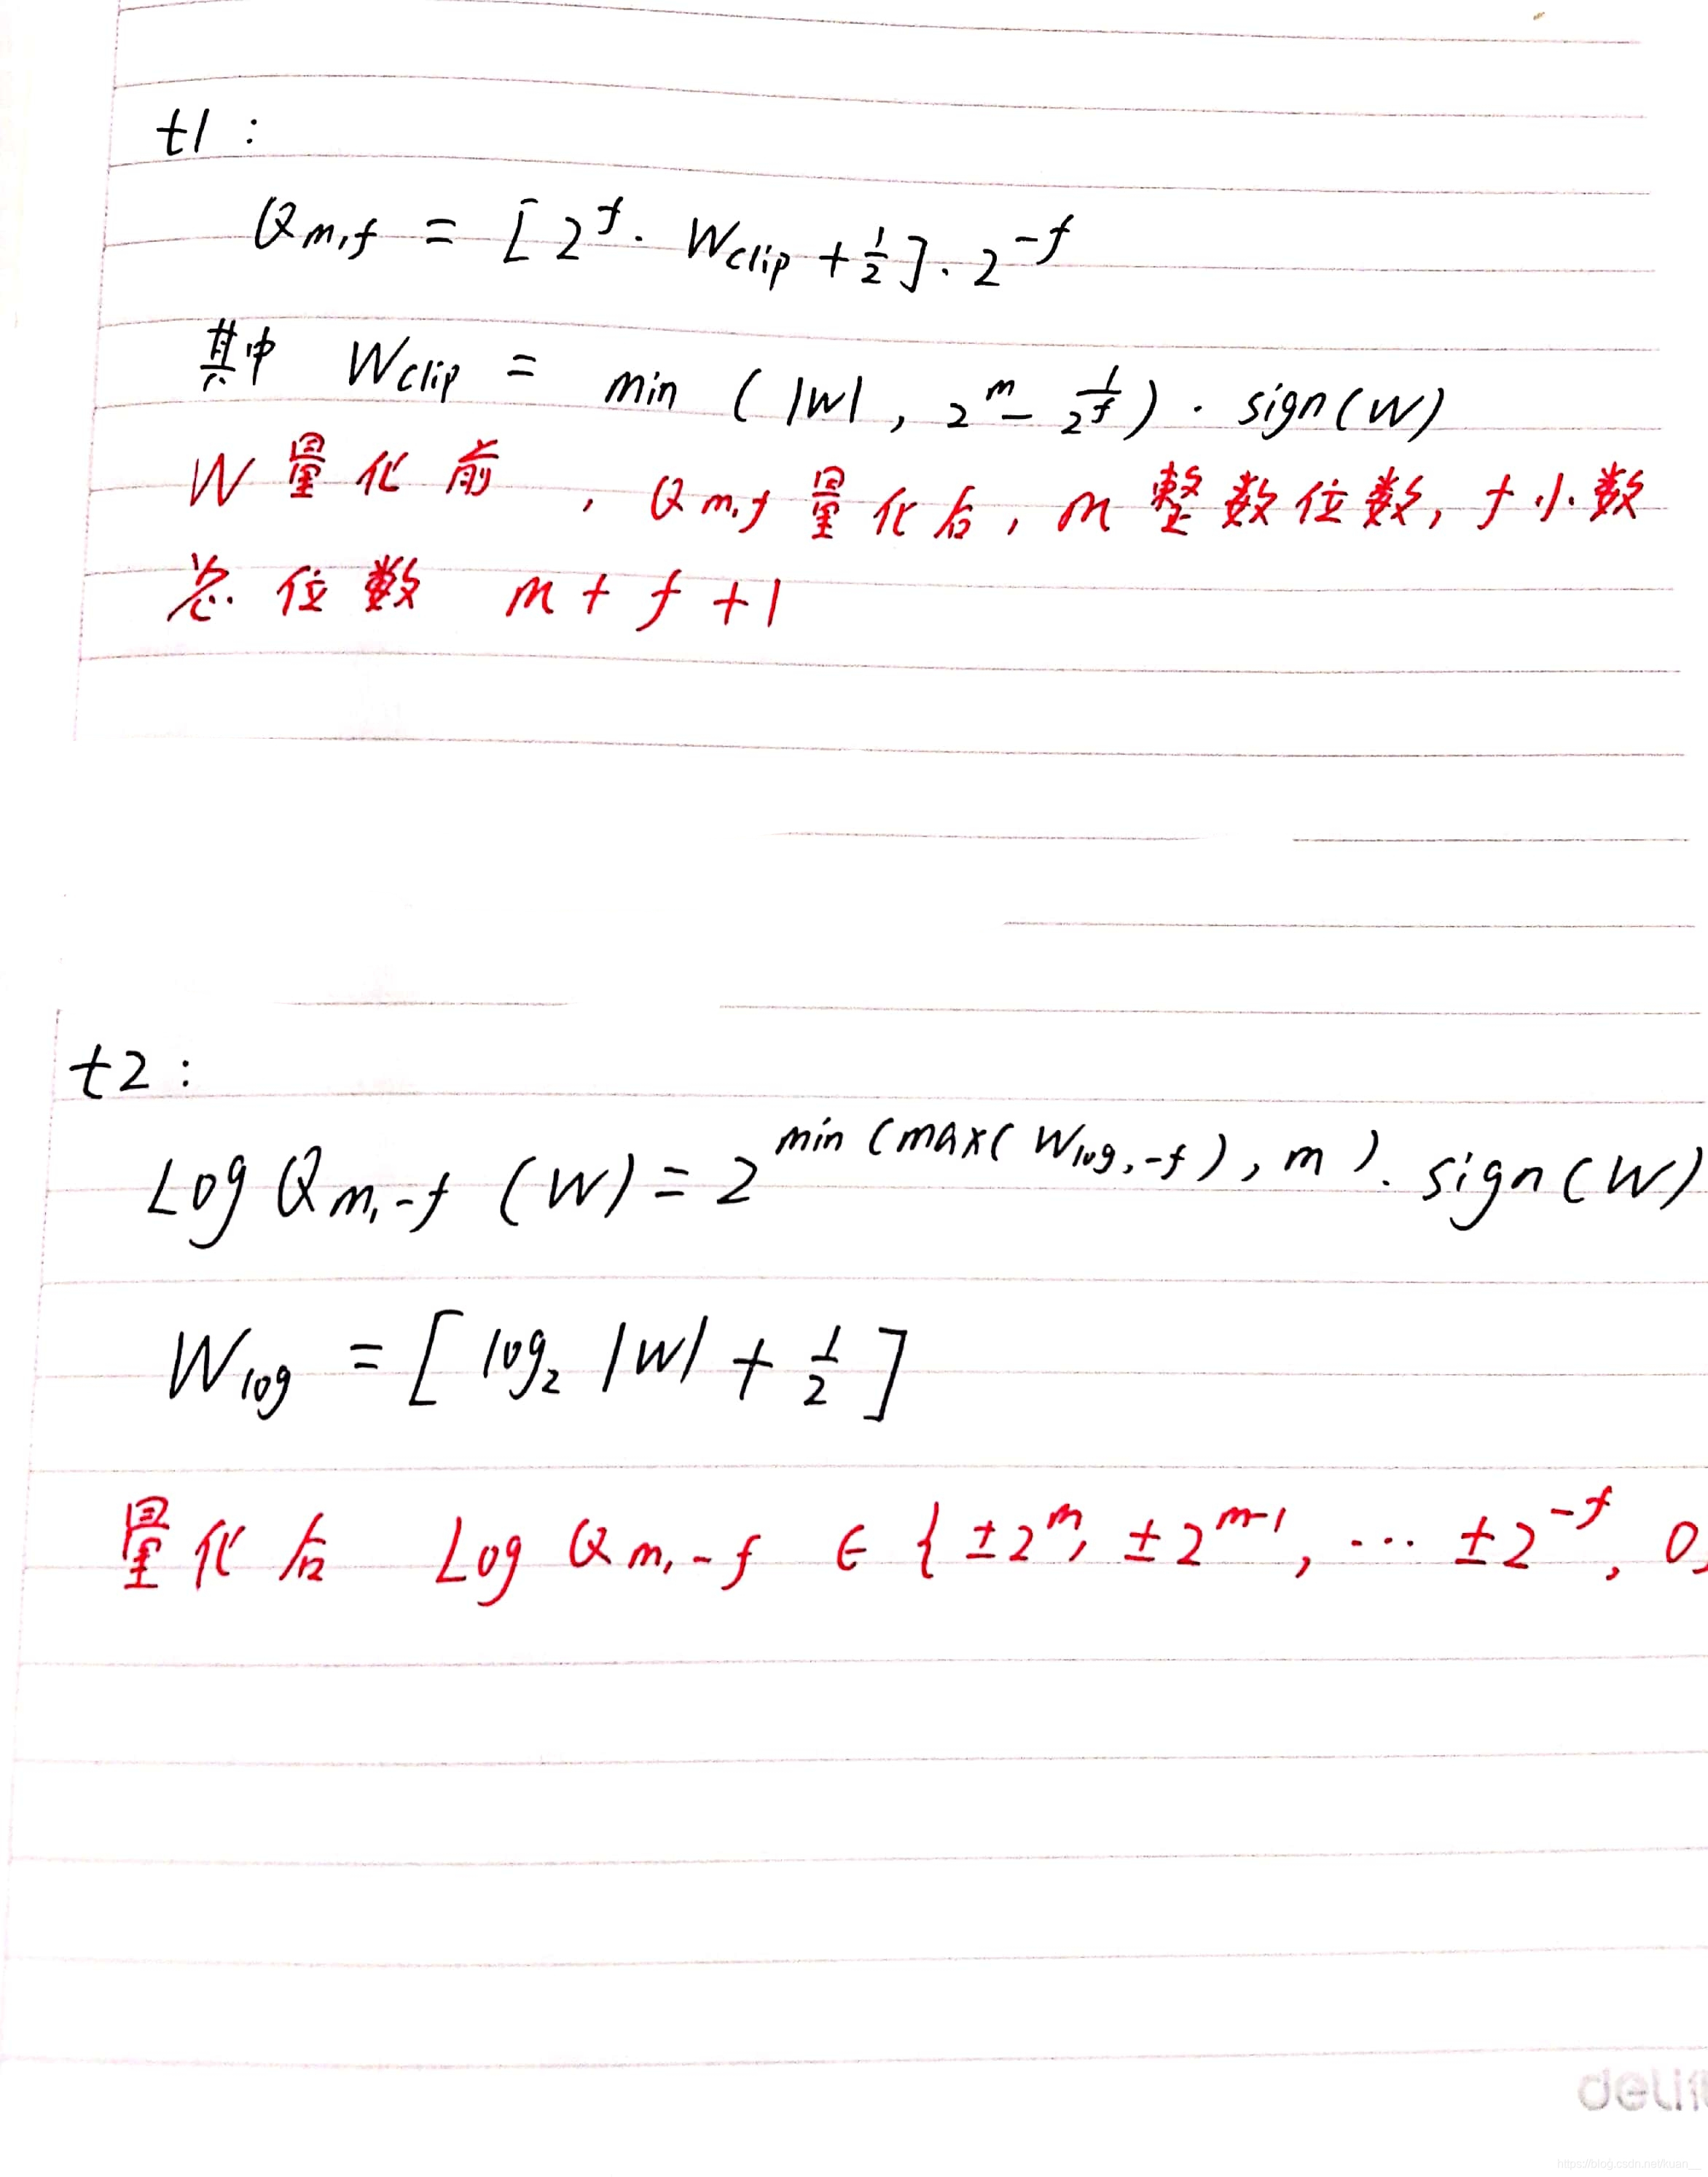 t1 :
Qm,f = [ 2^f · Wclip + 1/2 ] · 2^-f
其中 Wclip = min ( |W| , 2^m - 1/2^f ) · sign(W)
W 量化前 , Qm,f 量化后, m 整数位数, f 小数
总位数 m + f + 1
t2 :
Log Qm,-f (W) = 2^min (max( Wlog, -f ) , m ) · sign(W)
Wlog = [ log2 |W| + 1/2 ]
量化后 Log Qm,-f ∈ { ±2^m, ±2^m-1, ··· ±2^-f, 0,
deli
https://blog.csdn.net/kuan__